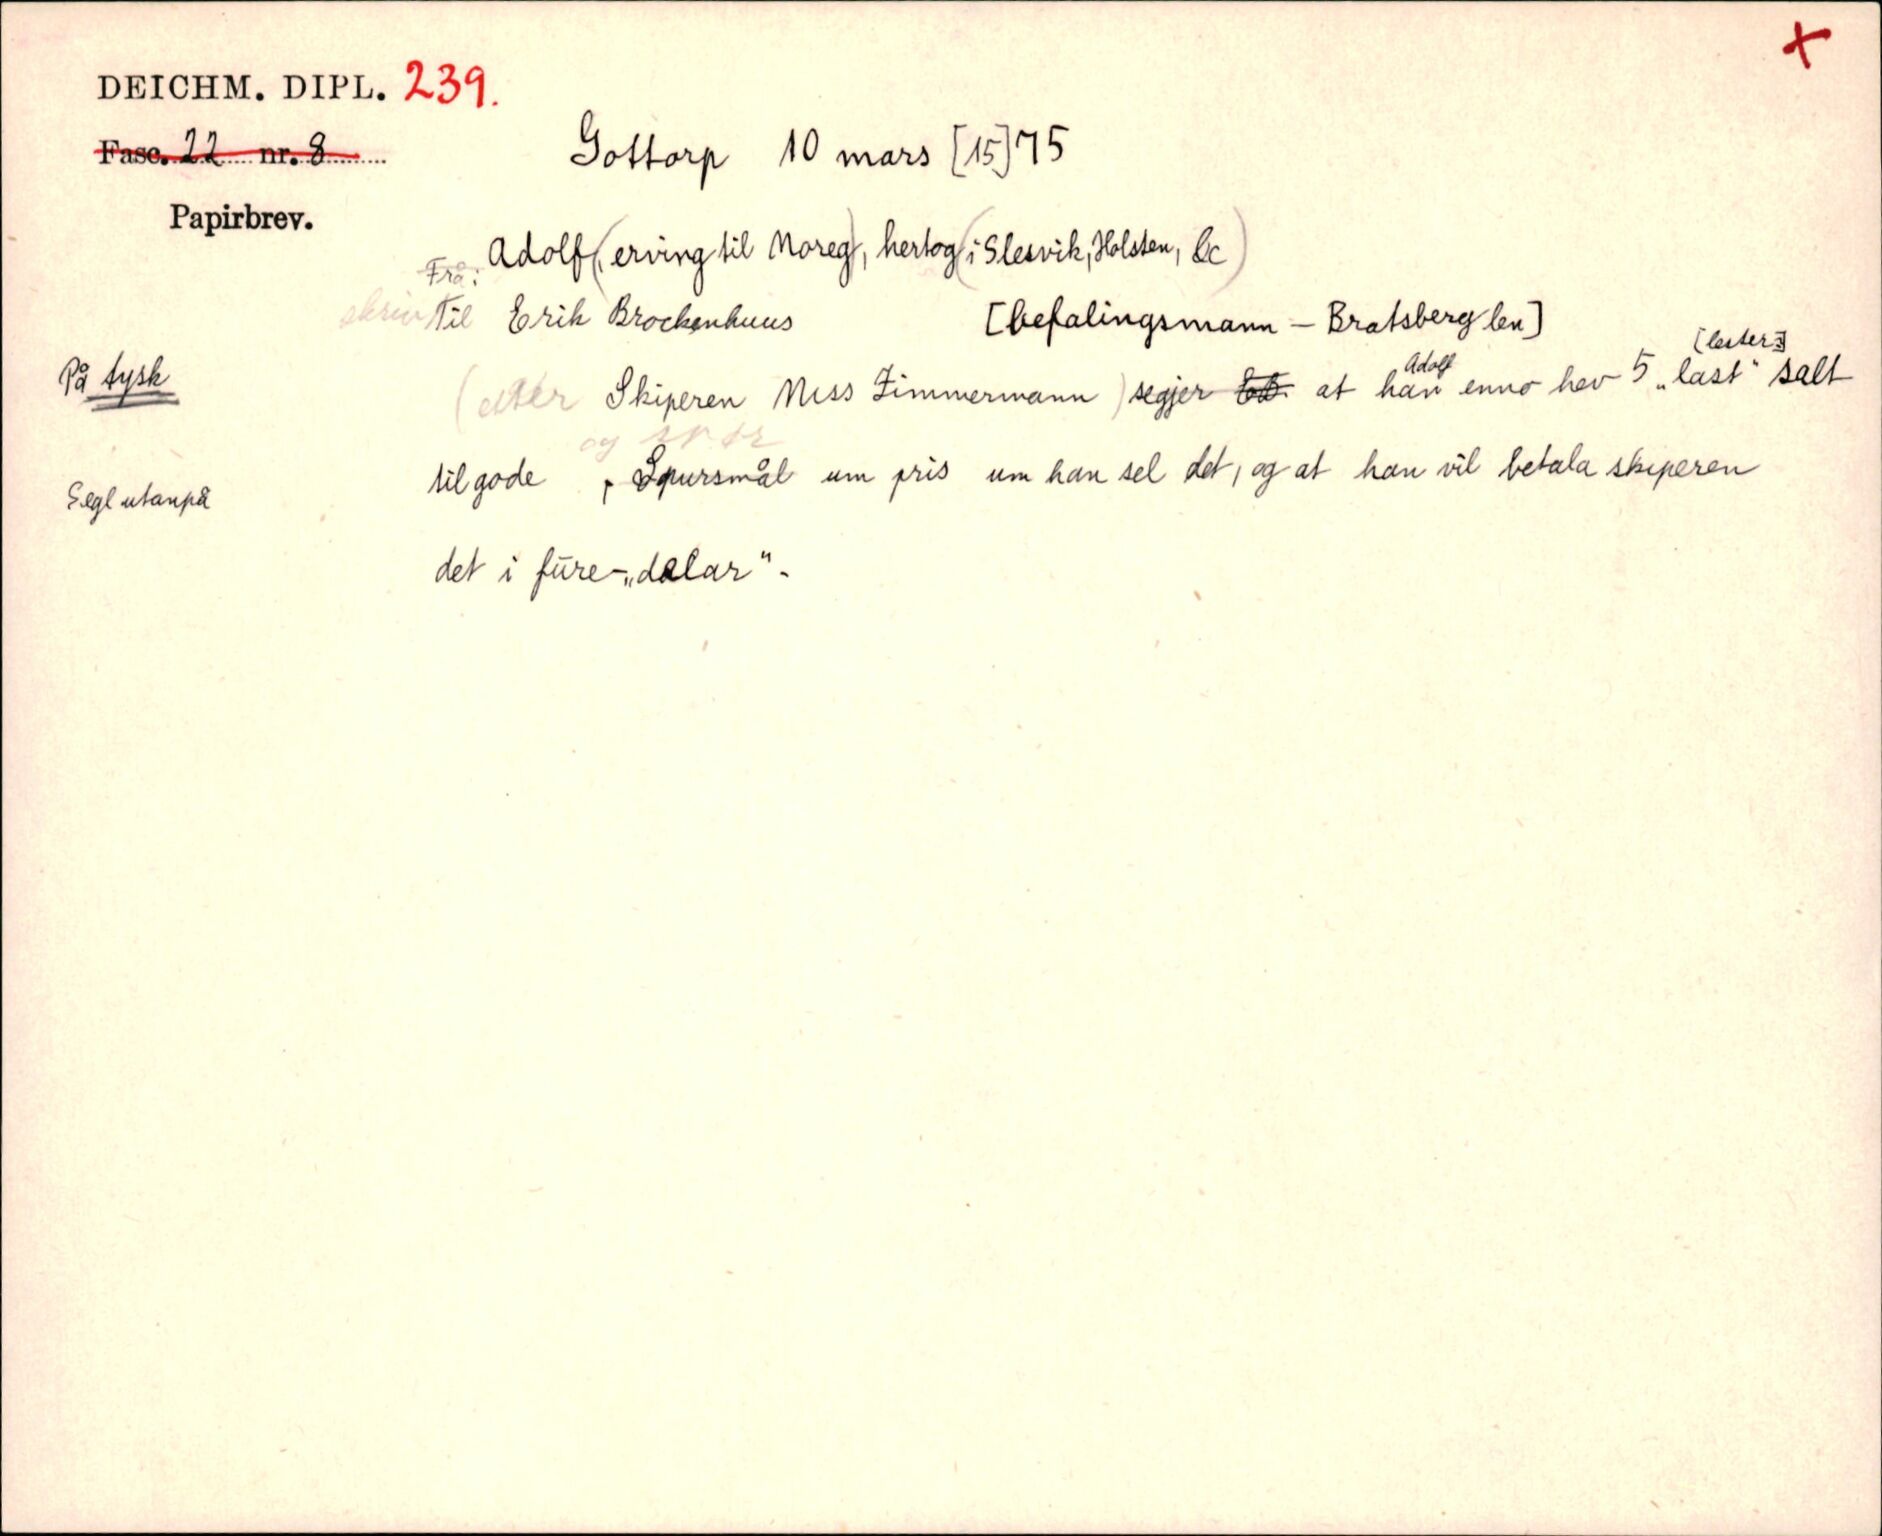 +
DEICHM. DIPL. 239.
Fasc. 22 nr. 8
Gottorp 10 mars [15]75
Papirbrev.
Frå: Adolf (erving til Noreg), hertog (i Slesvik, Holsten, &c)
skriv Til Erik Brockenhuus [befalingsmann – Bratsberg len]
[lester]
På tysk
Adolf
(etter Skiperen Niss Zimmermann) segjer at han enno hev 5 „last" salt
og spør
til gode, Spursmål um pris um han sel det, og at han vil betala skiperen
Segl utanpå
det i füre-„dalar".